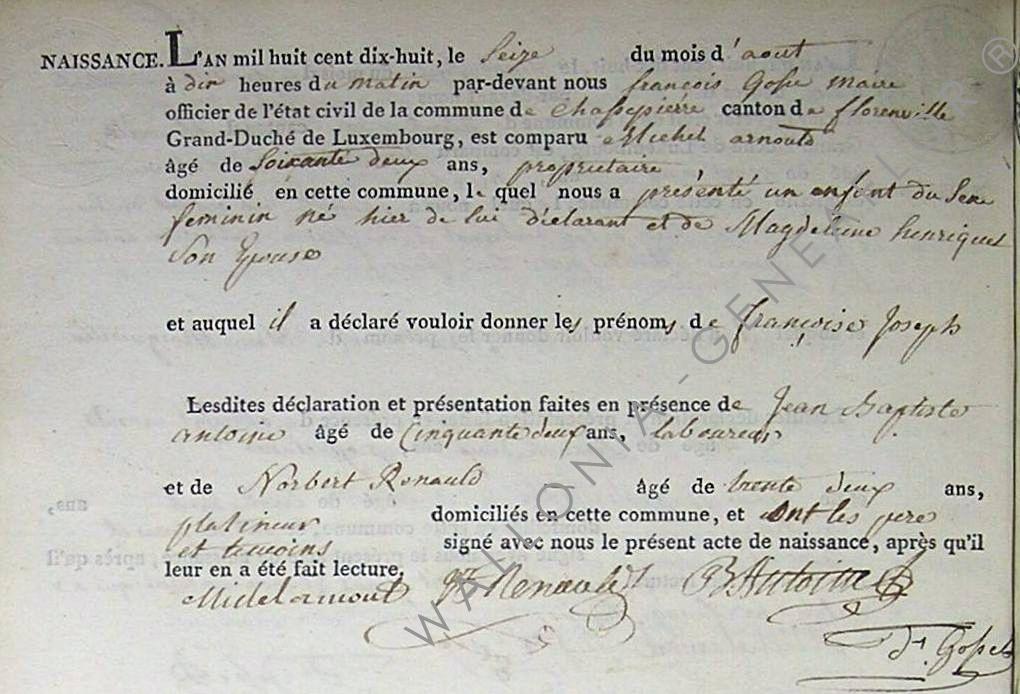 NAISSANCE. L'AN mil huit cent dix-huit, le Seize du mois d'aout
à dix heures du matin par-devant nous françois Gofse maire
officier de l'état civil de la commune de Chassepierre canton de florenville
Grand-Duché de Luxembourg, est comparu Michel arnould
âgé de Soixante deux ans, proprietaire
domicilié en cette commune, le quel nous a présenté un enfant du Sexe
feminin né hier de lui déclarant et de Magdeleine henriquet
Son Epouse
et auquel il a déclaré vouloir donner les prénoms de françoise Joseph
Lesdites déclaration et présentation faites en présence de Jean Baptiste
antoine âgé de Cinquante deux ans, laboureur
et de Norbert Renauld âgé de trente deux ans,
platineur domiciliés en cette commune, et ont les pere
et temoins signé avec nous le présent acte de naissance, après qu'il
leur en a été fait lecture.
Michel arnoult Renauld B Antoine
Gofse
WALLONIA-GENEALO